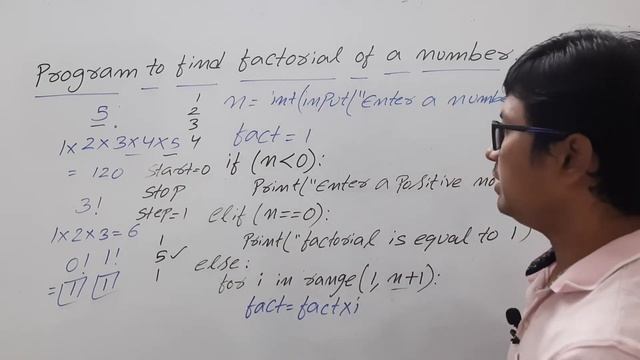 Program to find factorial of a number.
5.
1×2×3×4×5
= 120
3!
1×2×3=6
0! 1!
= 1 1
1
2
3
4
start=0
stop
step=1
1
5✓
1
n= int(input("Enter a numbe
fact = 1
if (n<0):
Print("Enter a Positive no
elif (n==0):
Print("factorial is equal to 1")
else:
for i in range(1, n+1):
fact=fact×i